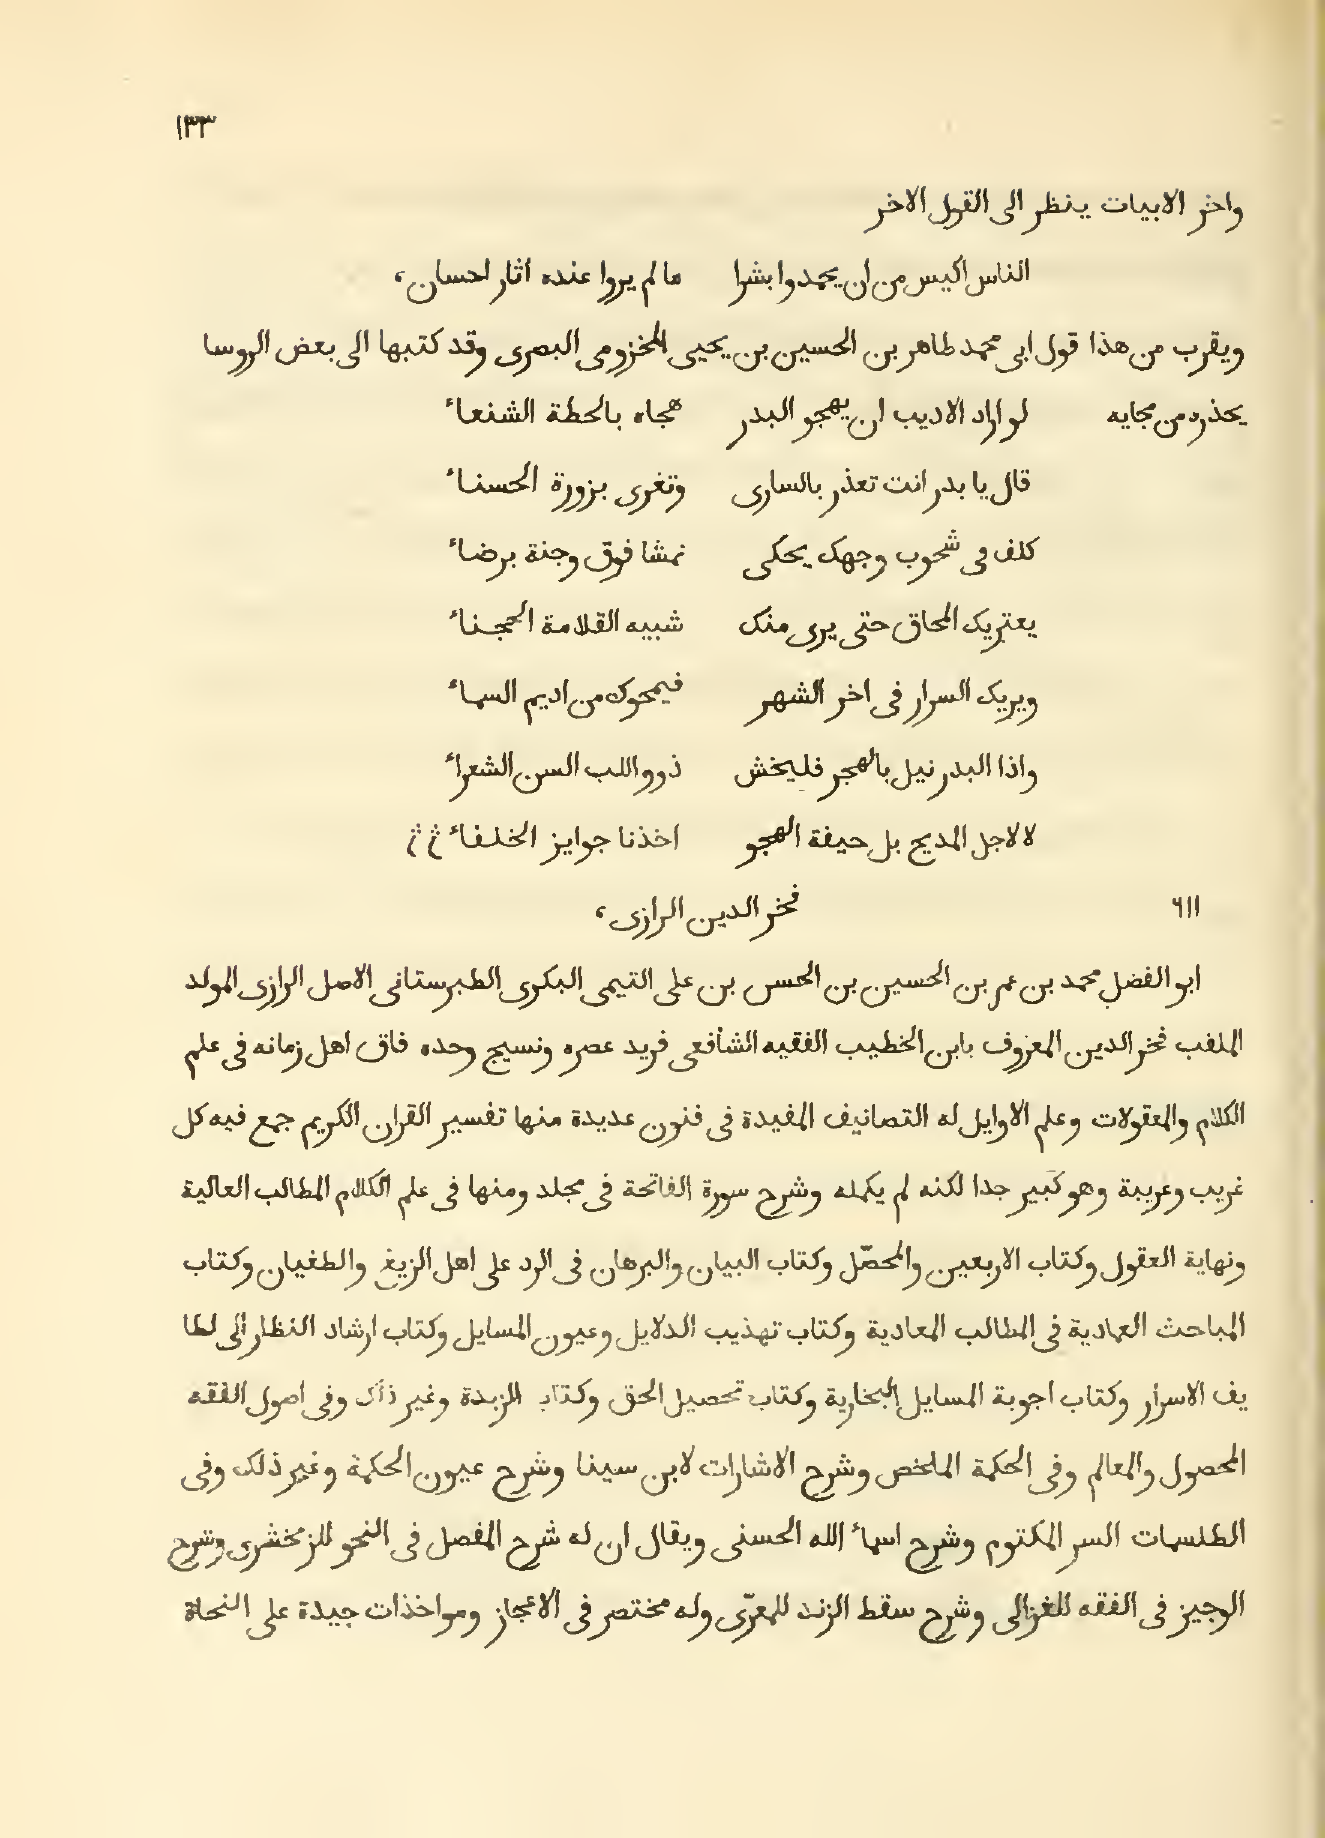 ١٣٣
واخر الابيات ينظر الى القول الاخر
الناس اكيس من ان يحمدوا بشرا ما لم يروا عنده اثار احسان،
ويقرب من هذا قول ابى محمد طاهر بن الحسين بن يحيى المخزومى البصرى وقد كتبها الى بعض الروسا
يحذره من هجايه لو اراد الاديب ان يهجو البدر هجاه بالخطة الشنعاء
قال يا بدر انت تغدر بالسارى وتغرى بزورة الحسناء
كلف فى شحوب وجهك يحكى نمشا فوق وجنة برضاء
يعتريك المحاق حتى يرى منك شبيه القلامة الحجناء
ويريك السرار فى اخر الشهر فيمحوك من اديم السماء
واذا البدر نيل بالهجر فليخش ذوو اللب السن الشعراء
لا لاجل المديح بل خيفة الهجو اخذنا جوايز الخلفاء
٦١١ فخر الدين الرازى،
ابو الفضل محمد بن عمر بن الحسين بن الحسن بن على التيمى البكرى الطبرستانى الاصل الرازى المولد
الملقب فخر الدين المعروف بابن الخطيب الفقيه الشافعى فريد عصره ونسيج وحده فاق اهل زمانه فى علم
الكلام والمعقولات وعلم الاوايل له التصانيف المفيدة فى فنون عديدة منها تفسير القران الكريم جمع فيه كل
غريب وغريبة وهو كبير جدا لكنه لم يكمله وشرح سورة الفاتحة فى مجلد ومنها فى علم الكلام المطالب العالية
ونهاية العقول وكتاب الاربعين والمحصّل وكتاب البيان والبرهان فى الرد على اهل الزيغ والطغيان وكتاب
المباحث العمادية فى المطالب المعادية وكتاب تهذيب الدلايل وعيون المسايل وكتاب ارشاد النظار الى لطا
يف الاسرار وكتاب اجوبة المسايل البخارية وكتاب تحصيل الحق وكتاب الزبدة وغير ذلك وفى اصول الفقه
المحصول والمعالم وفى الحكمة الملخص وشرح الاشارات لابن سينا وشرح عيون الحكمة وغير ذلك وفى
الطلسمات السر المكتوم وشرح اسماء الله الحسنى ويقال ان له شرح المفصل فى النحو للزمخشرى وشرح
الوجيز فى الفقه للغزالى وشرح سقط الزند للمعرّى وله مختصر فى الاعجاز ومواخذات جيدة على النحاة